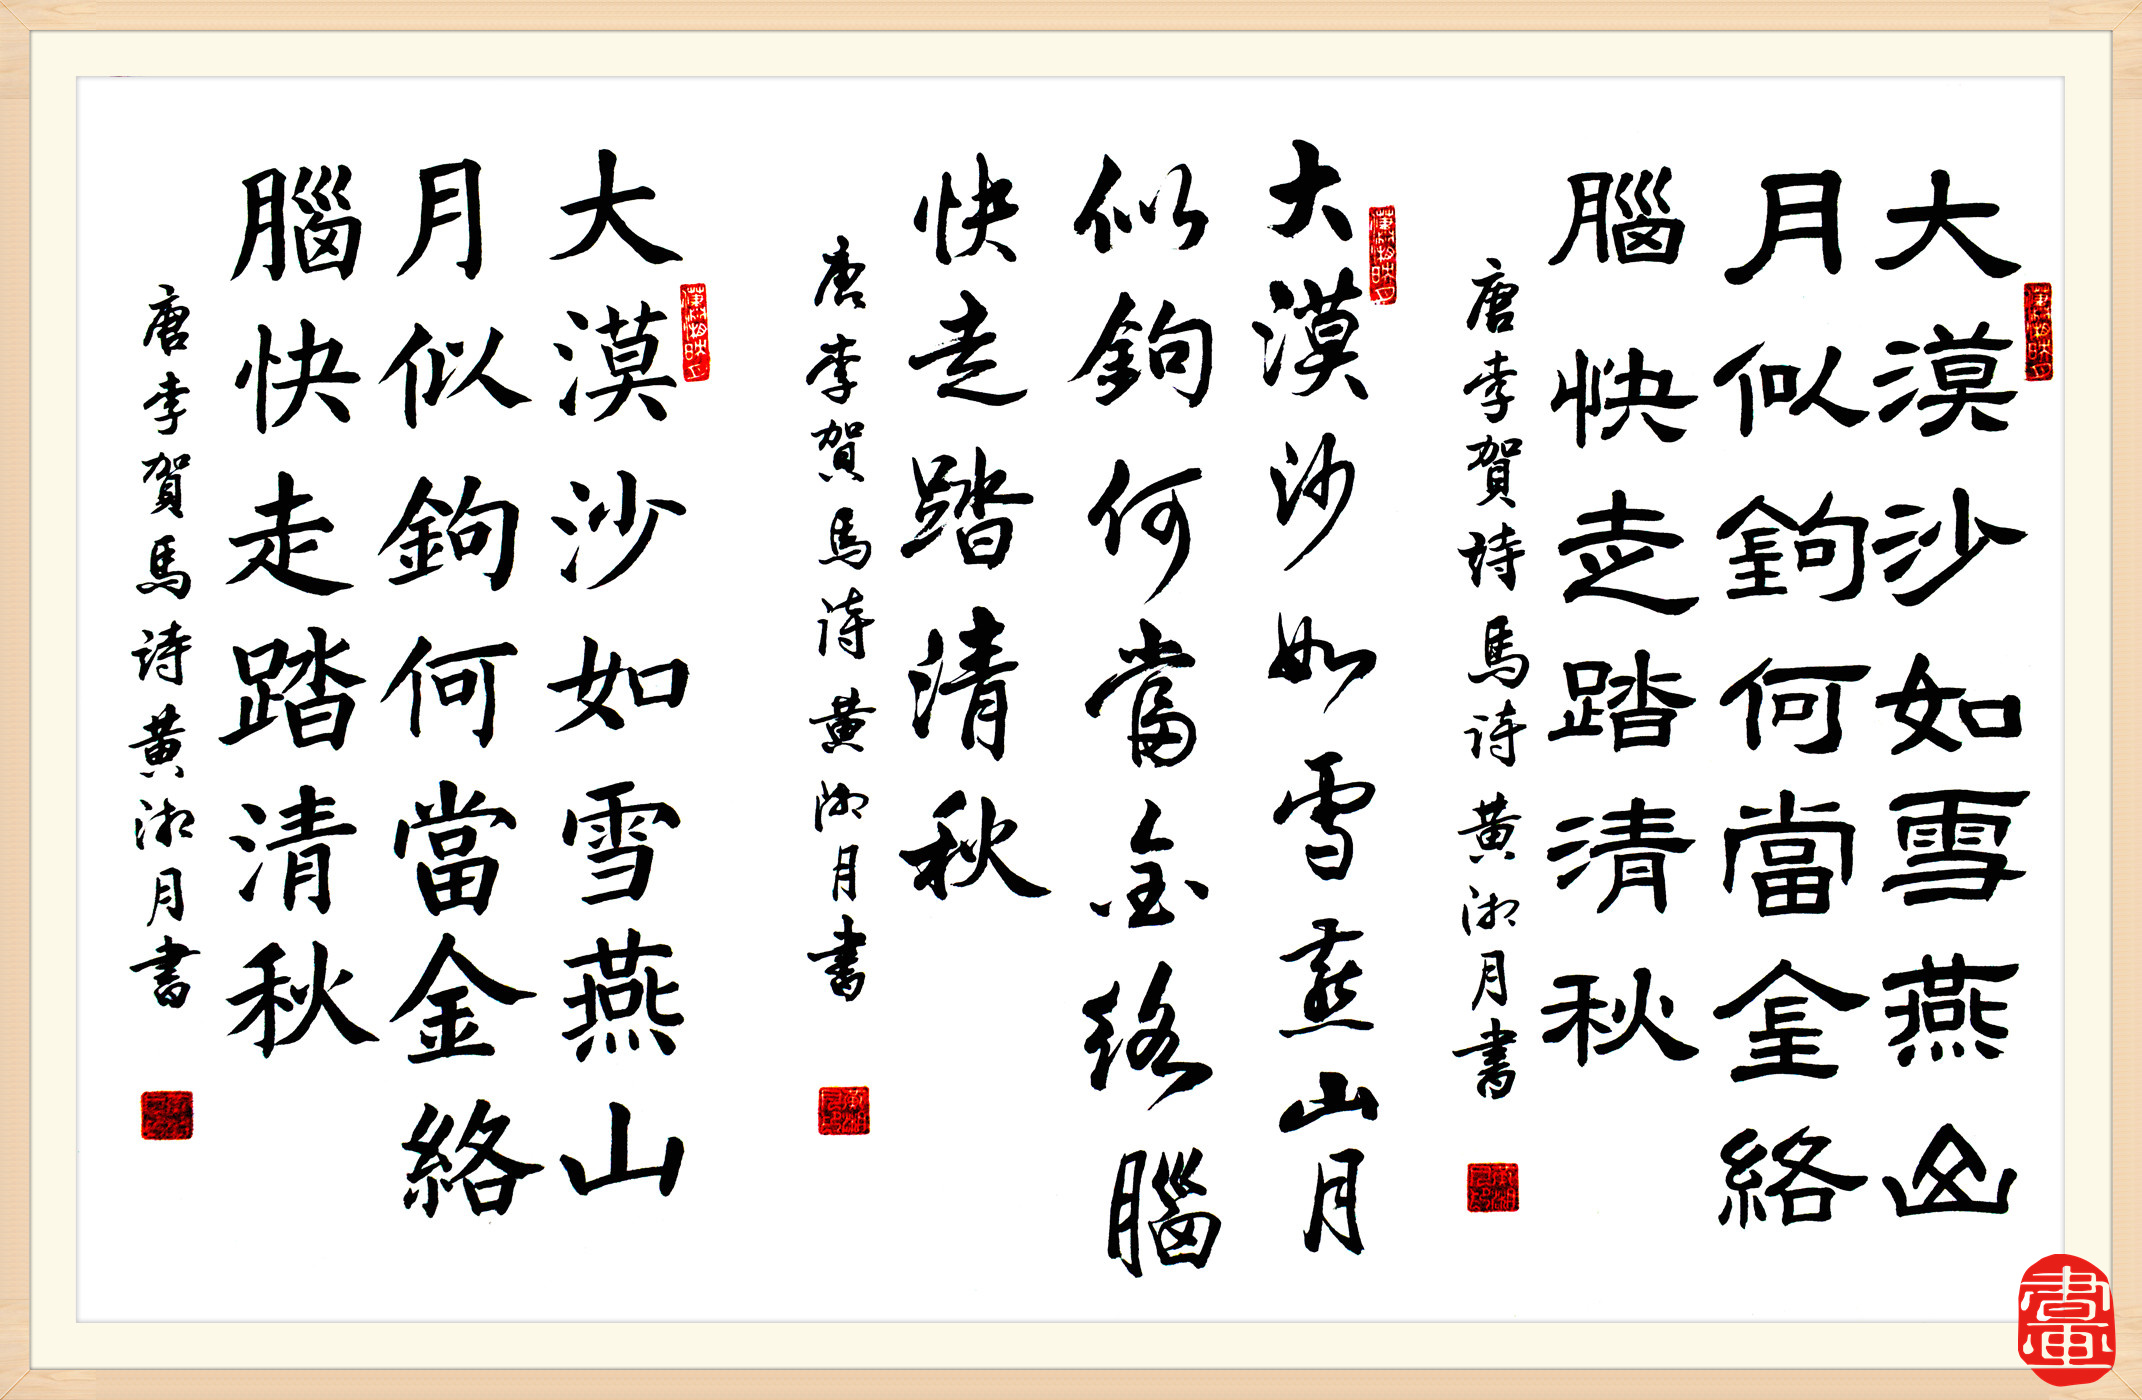 大漠沙如雪燕山
月似鉤何當金絡
腦快走踏清秋
唐李賀詩馬詩黄湘月書
大漠沙如雪燕山月
似鉤何當金絡腦
快走踏清秋
唐李賀馬詩黄湘月書
大漠沙如雪燕山
月似鉤何當金絡
腦快走踏清秋
唐李賀馬詩黄湘月書